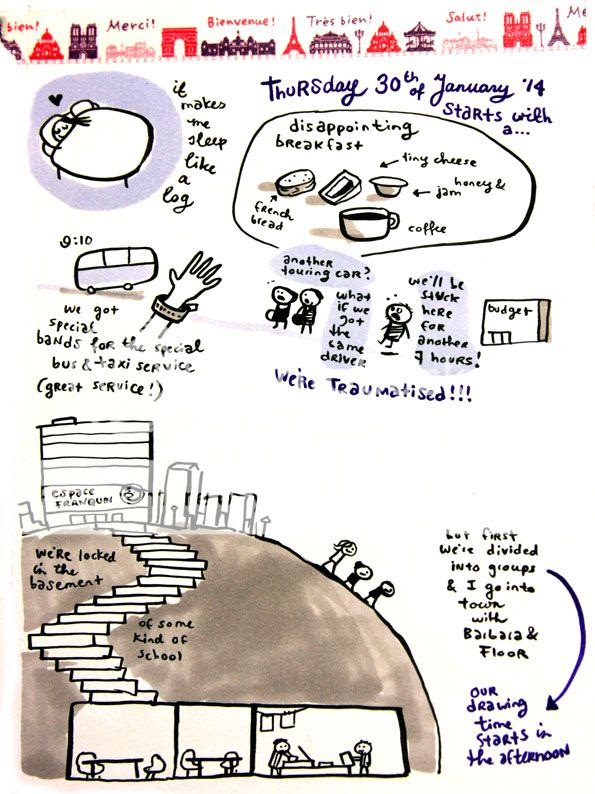 bien!
Merci!
Bienvenue!
Très bien!
Salut!
Me
it
makes
me
sleep
like
a
log
Thursday 30th of January '14
starts with
a...
disappointing
breakfast
tiny cheese
honey &
jam
french
bread
coffee
9:10
we got
special
bands for the special
bus & taxi service
(great service!)
another
touring car?
what
if we
got
the
same
driver
we'll be
stuck
here
for
another
7 hours!
budget
We're Traumatised!!!
espace
FRANQUIN
we're locked
in the
basement
of some
kind of
school
but first
we're divided
into groups
& I go into
town
with
Barbara &
Floor
our
drawing
time
starts in
the afternoon